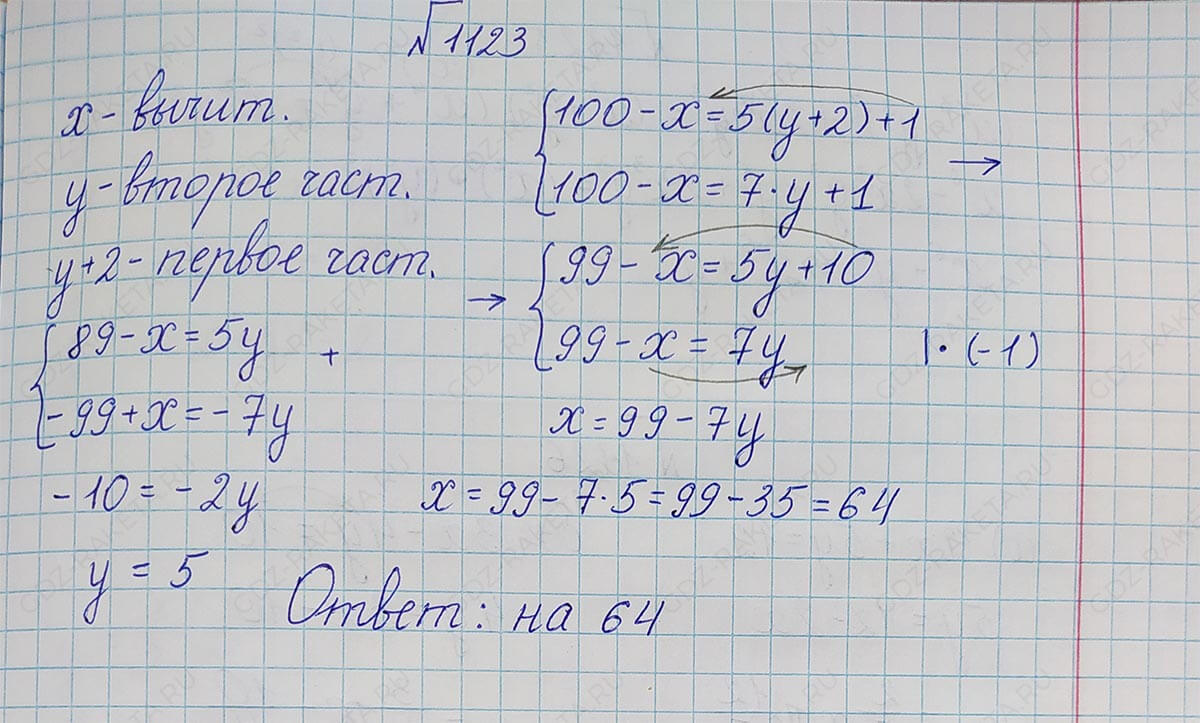 №1123
x - вычит.
y - второе част.
y+2 - первое част.
{100 - x = 5(y+2)+1
{100 - x = 7·y+1 →
→ {99 - x = 5y+10
{99 - x = 7y |·(-1)
{89 - x = 5y
{-99 + x = -7y +
-10 = -2y
y = 5
x = 99 - 7y
x = 99 - 7·5 = 99 - 35 = 64
Ответ: на 64
GDZ-RAKETA.RU